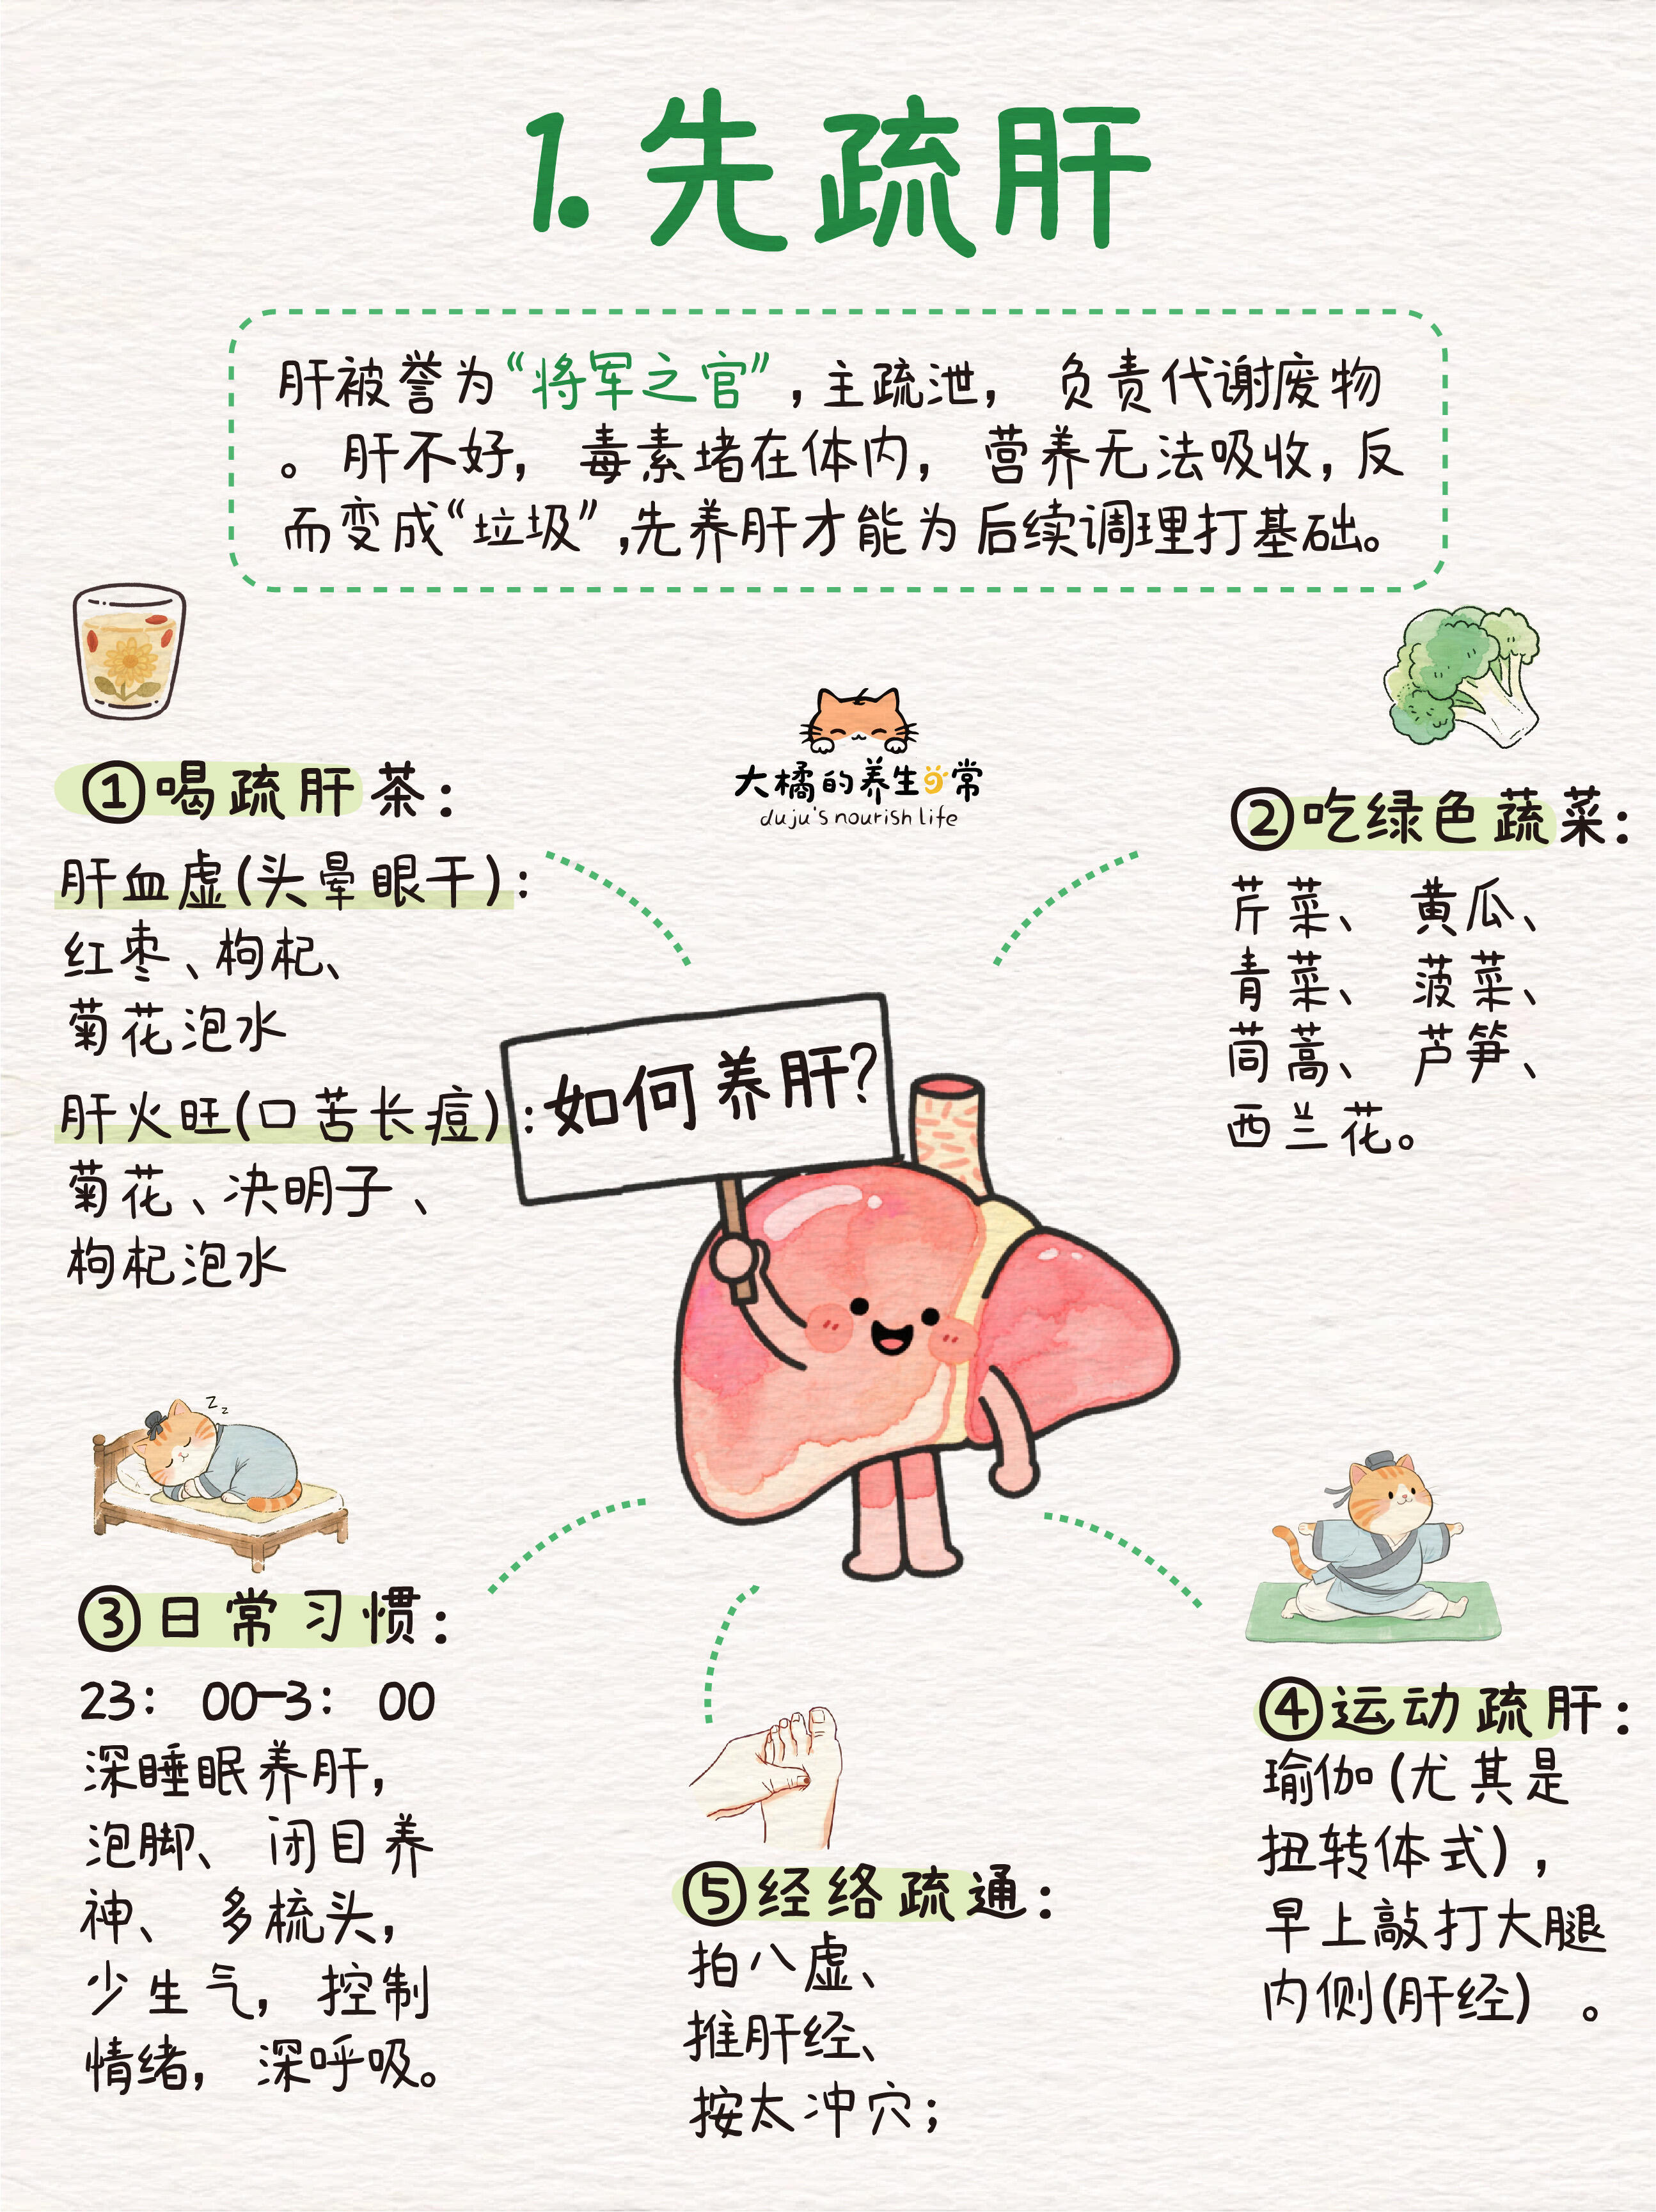 1.先疏肝
肝被誉为“将军之官”,主疏泄, 负责代谢废物
。肝不好, 毒素堵在体内, 营养无法吸收,反
而变成“垃圾”,先养肝才能为后续调理打基础。
大橘的养生日常
duju's nourish life
①喝疏肝茶:
肝血虚(头晕眼干):
红枣、枸杞、
菊花泡水
肝火旺(口苦长痘):
菊花、决明子、
枸杞泡水
②吃绿色蔬菜:
芹菜、 黄瓜、
青菜、 菠菜、
茼蒿、 芦笋、
西兰花。
如何养肝?
③日常习惯:
23: 00-3: 00
深睡眠养肝,
泡脚、 闭目养
神、 多梳头,
少生气, 控制
情绪, 深呼吸。
④运动疏肝:
瑜伽(尤其是
扭转体式),
早上敲打大腿
内侧(肝经) 。
⑤经络疏通:
拍八虚、
推肝经、
按太冲穴;
z z